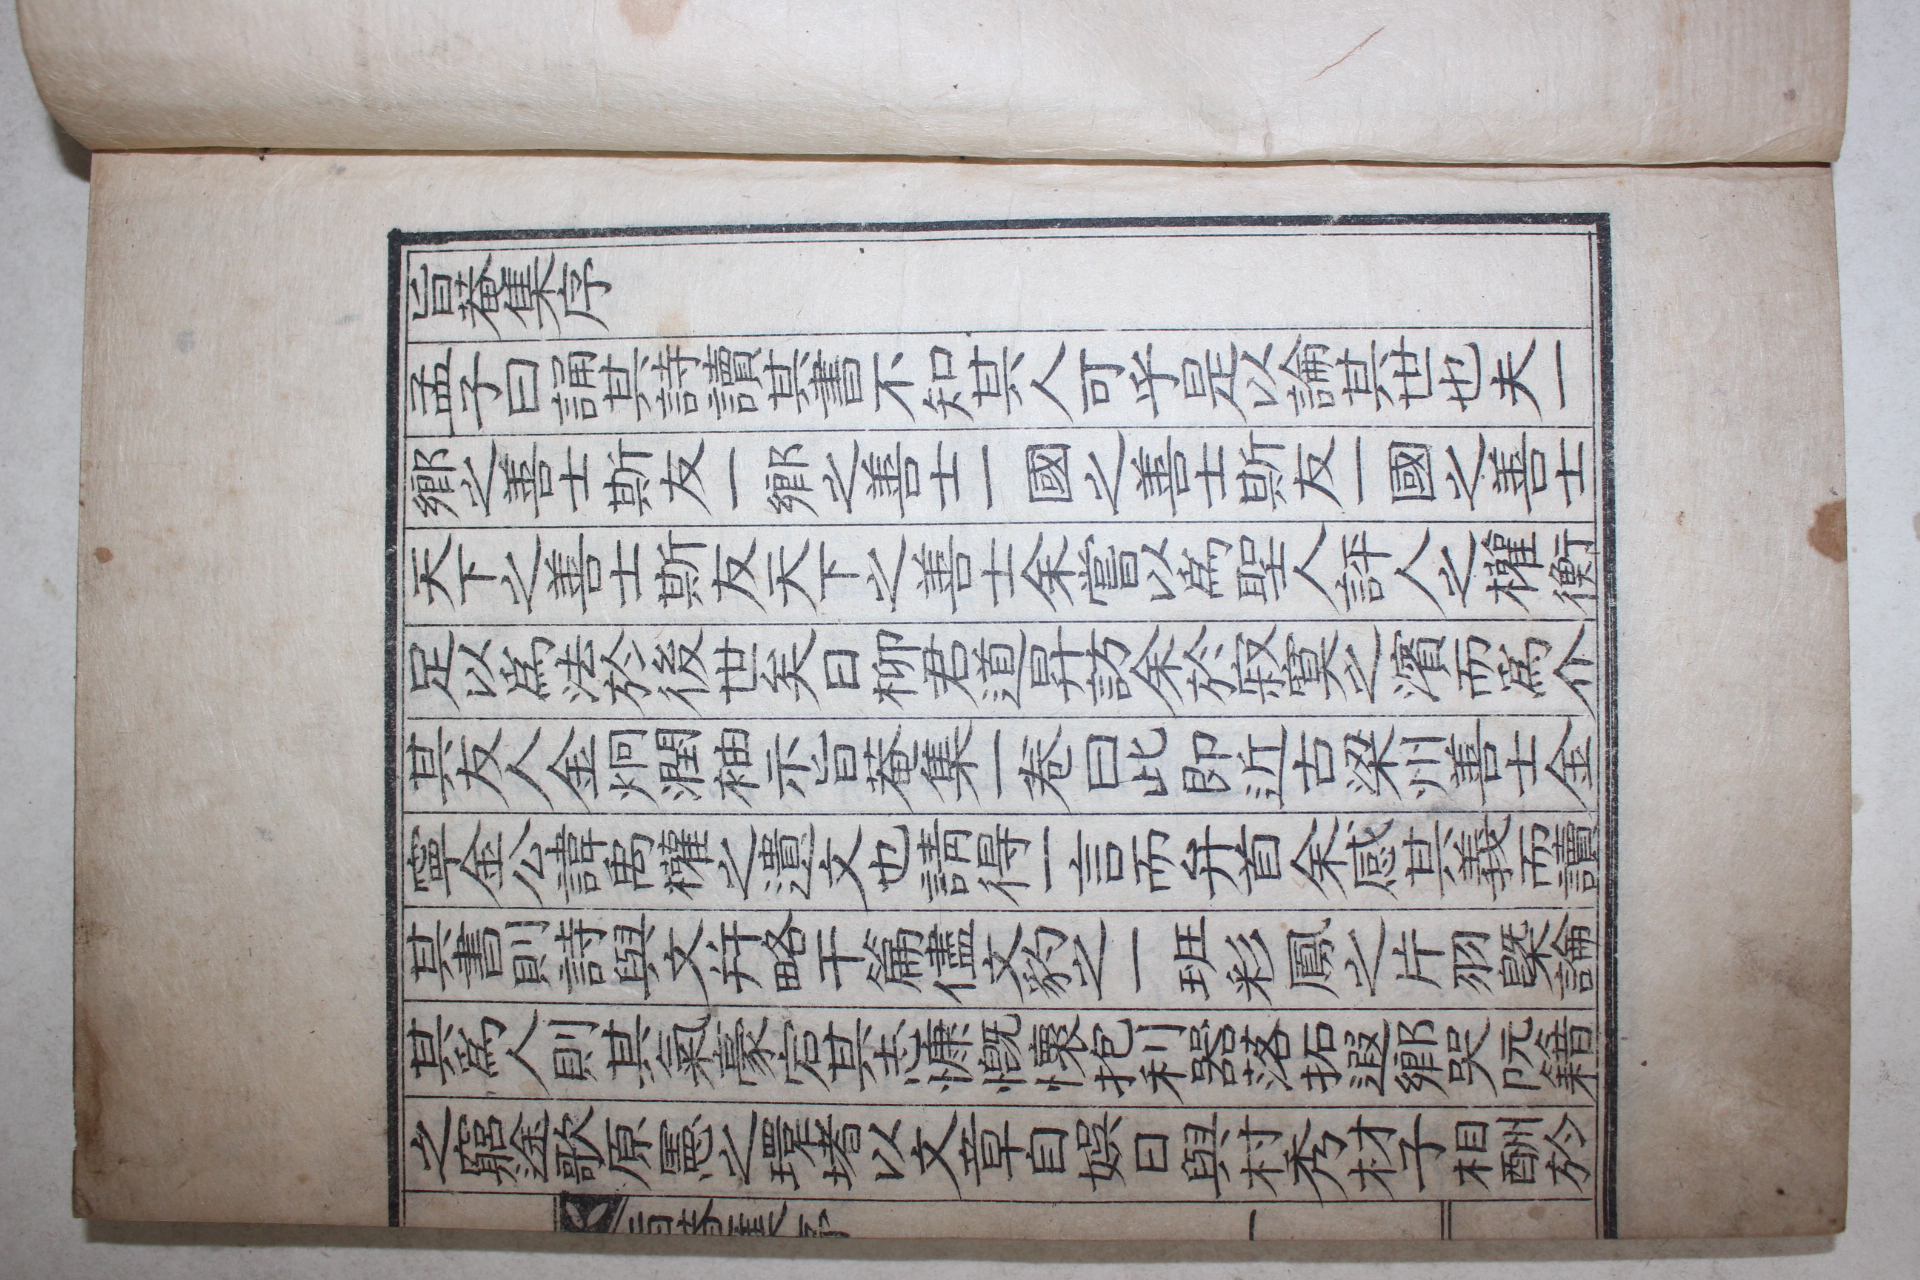 旨菴集序
孟子曰誦其詩讀其書不知其人可乎是以論其世也夫一
鄕之善士斯友一鄕之善士一國之善士斯友一國之善士
天下之善士斯友天下之善士余嘗以爲聖人評人之權衡
足以爲法於後世矣日柳君道昇訪余於寂寞之濱而爲介
其友人金炯潤袖示旨菴集一卷曰此即近古梁州善士金
寧金公諱禹權之遺文也請得一言而弁首余感其義而讀
其書則詩與文幷略干篇儘文豹之一班彩鳳之片羽槩論
其爲人則其氣豪宕其志慷慨懷抱利器落拓遐鄕哭阮籍
之窮途歌原憲之環堵以文章自娛日與村秀才子相酬於
旨菴集序 一